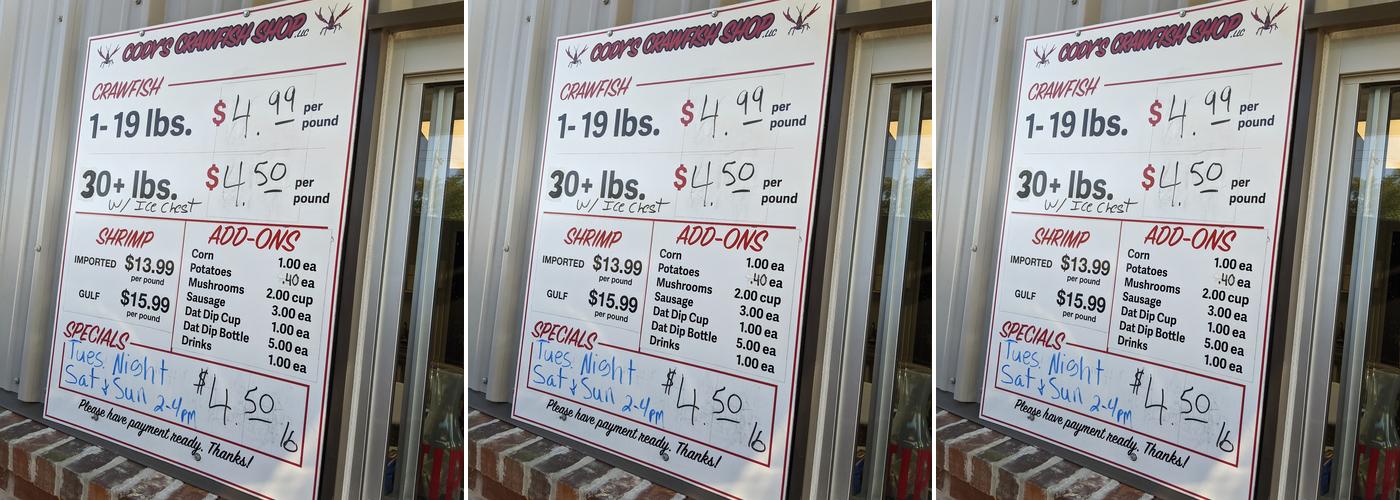 CODY'S CRAWFISH SHOP, LLC
CRAWFISH
1-19 lbs. $4.99 per pound
30+ lbs. $4.50 per pound
w/ Ice Chest
SHRIMP
IMPORTED $13.99
per pound
GULF $15.99
per pound
ADD-ONS
Corn 1.00 ea
Potatoes .40 ea
Mushrooms 2.00 cup
Sausage 3.00 ea
Dat Dip Cup 1.00 ea
Dat Dip Bottle 5.00 ea
Drinks 1.00 ea
SPECIALS
Tues. Night
Sat & Sun 2-4pm $4.50 lb
Please have payment ready. Thanks!
CODY'S CRAWFISH SHOP, LLC
CRAWFISH
1-19 lbs. $4.99 per pound
30+ lbs. $4.50 per pound
w/ Ice Chest
SHRIMP
IMPORTED $13.99
per pound
GULF $15.99
per pound
ADD-ONS
Corn 1.00 ea
Potatoes .40 ea
Mushrooms 2.00 cup
Sausage 3.00 ea
Dat Dip Cup 1.00 ea
Dat Dip Bottle 5.00 ea
Drinks 1.00 ea
SPECIALS
Tues. Night
Sat & Sun 2-4pm $4.50 lb
Please have payment ready. Thanks!
CODY'S CRAWFISH SHOP, LLC
CRAWFISH
1-19 lbs. $4.99 per pound
30+ lbs. $4.50 per pound
w/ Ice Chest
SHRIMP
IMPORTED $13.99
per pound
GULF $15.99
per pound
ADD-ONS
Corn 1.00 ea
Potatoes .40 ea
Mushrooms 2.00 cup
Sausage 3.00 ea
Dat Dip Cup 1.00 ea
Dat Dip Bottle 5.00 ea
Drinks 1.00 ea
SPECIALS
Tues. Night
Sat & Sun 2-4pm $4.50 lb
Please have payment ready. Thanks!